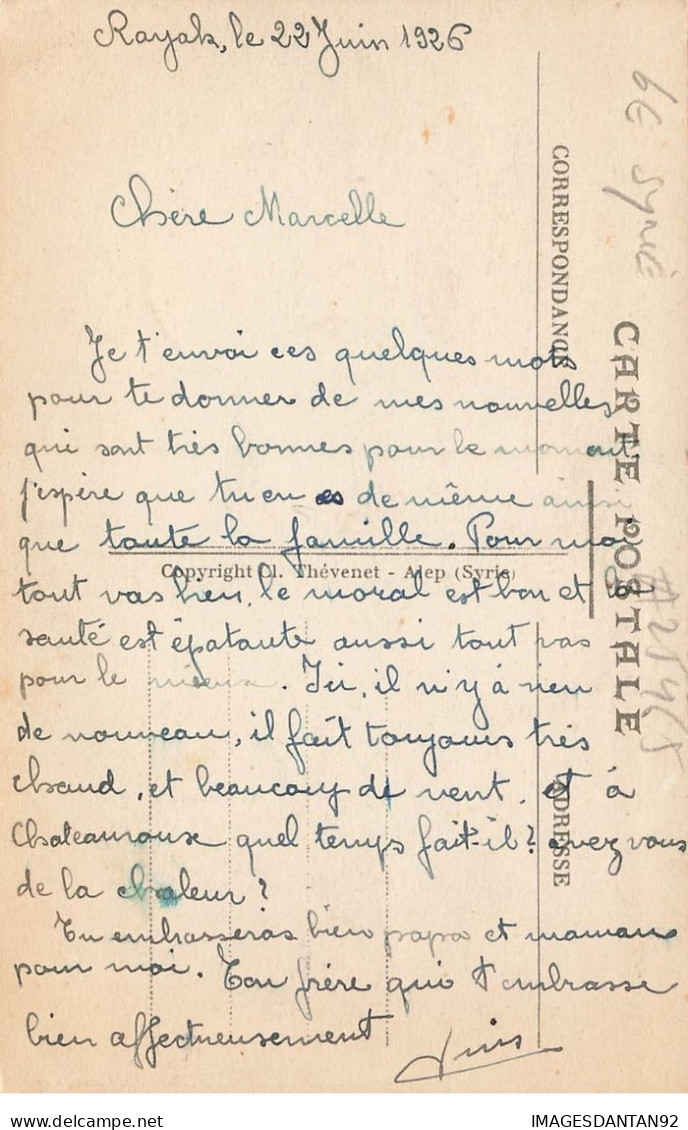 Rayak, le 22 Juin 1926
Chère Marcelle
Je t'envoi ces quelques mots
pour te donner de mes nouvelles,
qui sont très bonnes pour le moment
j'espère que tu en es de même ainsi
que toute la famille. Pour moi
tout vas bien, le moral est bon et la
santé est épatante aussi tout vas
pour le mieux. Ici, il n'y à rien
de nouveau, il fait toujours très
chaud, et beaucoup de vent, et à
Chateauroux quel temps fait-il? avez vous
de la chaleur?
Tu embrasseras bien papa et maman
pour moi. Ton frère qui t'embrasse
bien affectueusement
CORRESPONDANCE
CARTE POSTALE
ADRESSE
Copyright Cl. Thévenet - Alep (Syrie)
6€ Syrie
IMAGESDANTAN92